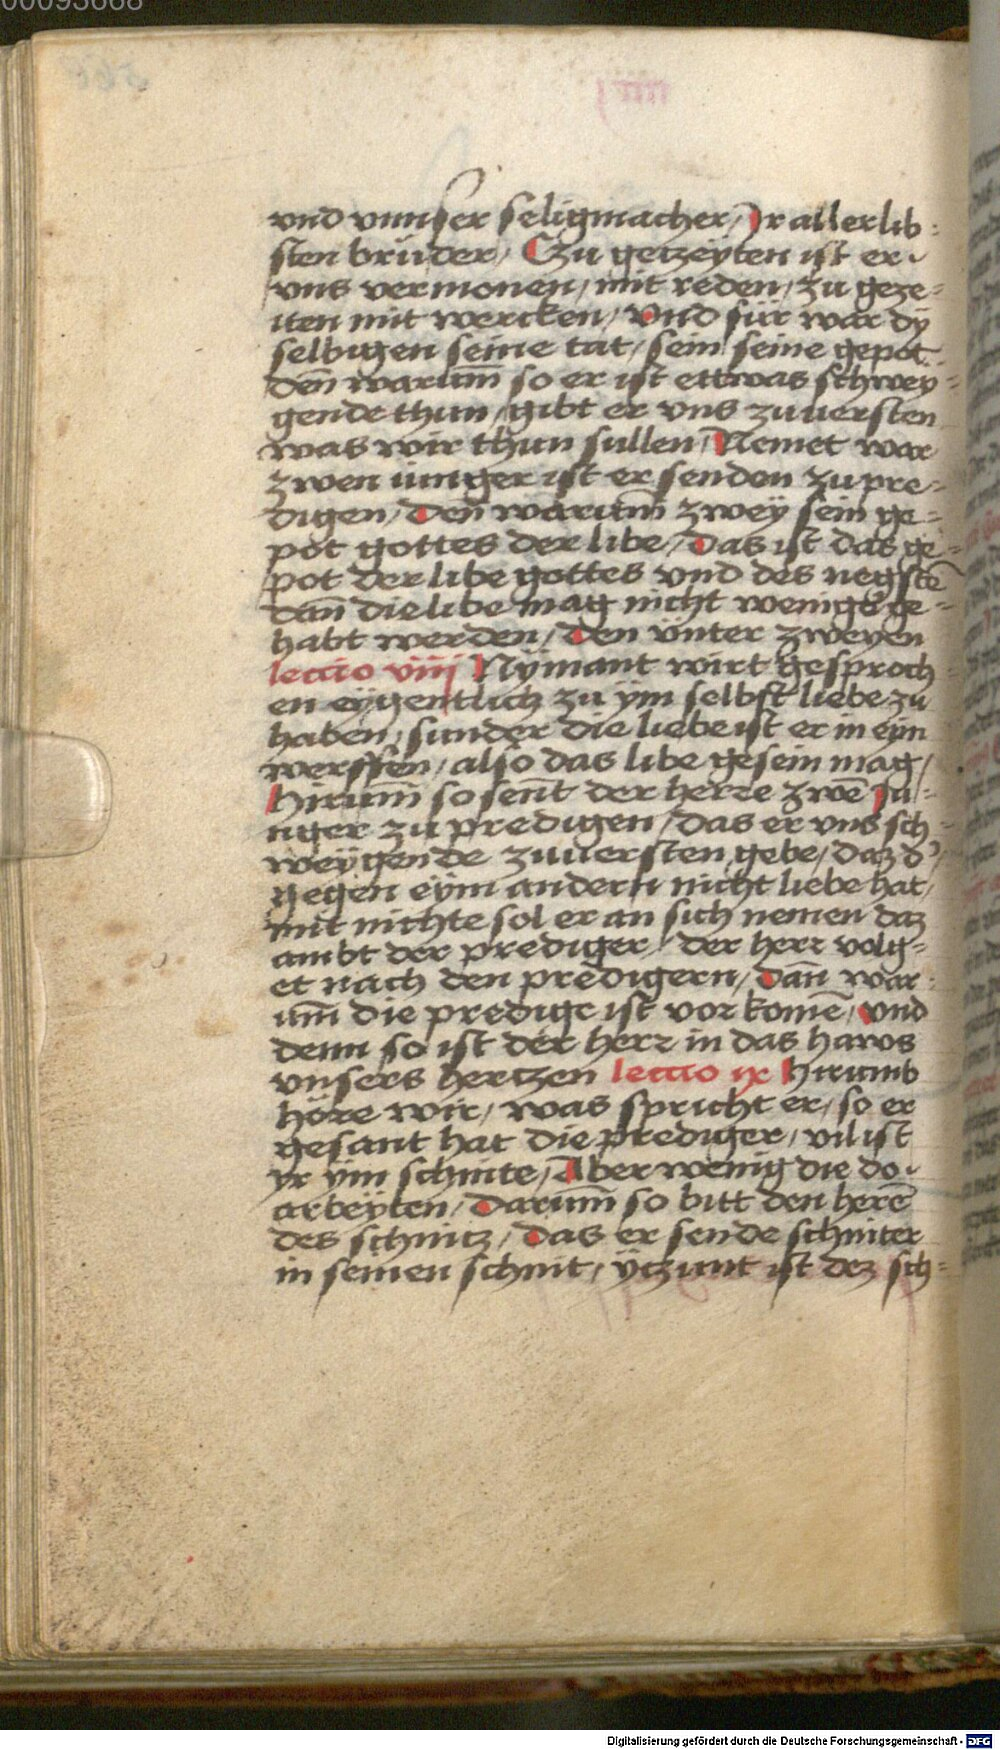 00093668
vnd vnnser seligmacher / Ir allerlib-
sten brüder / Czu getzeyten ist er
vns vermonen / mit reden / zu geze-
iten mit wercken / Vnd für war dÿ
selbigen seine tat / sein seine gepot
den̄ warum̄ so er ist ettwas schwey-
gende thun / gibt er vns zuuersten
was wir thun sullen / Nemet war
zwen iunger ist er senden zu pre-
digen / Den̄ warum̄ zwey sein ge-
pot gottes der libe / Das ist das ge-
pot der libe gottes vnd des negstē
dan̄ die libe mag nicht wenigs ge-
habt werden / Den vnter zweyen
lectio viij Nÿmant wirt gesproch-
en eÿgentlich zu ÿm selbst liebe zu
haben / sunder die liebe ist er in eyn
werffen / also das libe gesein mag /
Hirum̄ so sent der herre zwē Ju-
nger zu predigen / das er vns sch-
weÿgende zuuersten gebe / daz d'
gegen eÿm andern nicht liebe hat /
mit nichte sol er an sich nemen daz
ambt der prediger / der herr volg-
et nach den predigern / Dan̄ war-
um̄ die predige ist vorkomē / vnd
denn so ist der herr in das haws
vnsers hertzen lectio ix Hirumb
höre wir / was spricht er / so er
gesant hat die prediger / vil ist
yr ÿm schnite / Aber wenig die do
arbeÿten / Darum so bitt den herē
des schnitz / Das er sende schniter
in seinen schnit / ÿtzunt ist dez sch-
Digitalisierung gefördert durch die Deutsche Forschungsgemeinschaft - DFG